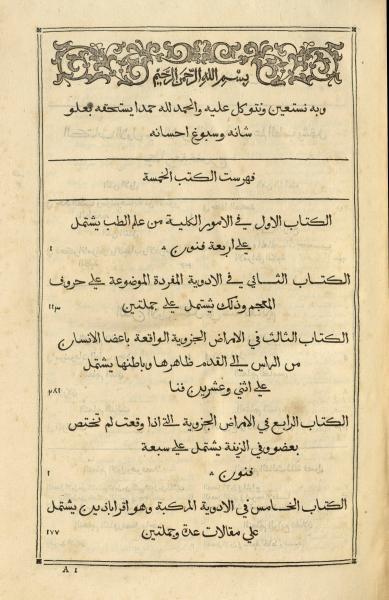 بسم الله الرحمن الرحيم
وبه نستعين ونتوكل عليه والحمد لله حمدا يستحقه بعلو
شانه وسبوغ احسانه
فهرست الكتب الخمسة
الكتاب الاول في الامور الكلية من علم الطب يشتمل
على اربعة فنون ٨ ١
الكتاب الثاني في الادوية المفردة الموضوعة على حروف
المعجم وذلك يشتمل على جملتين ١١٣
الكتاب الثالث في الامراض الجزوية الواقعة باعضا الانسان
من الراس الى القدم ظاهرها وباطنها يشتمل
على اثني وعشرين فنا ٢٨٢
الكتاب الرابع في الامراض الجزوية التي اذا وقعت لم تختص
بعضو وفي الزينة يشتمل على سبعة
فنون ٨ ١
الكتاب الخامس في الادوية المركبة وهو اقراباذين يشتمل
على مقالات عدة وجملتين ١٧٧
A 1